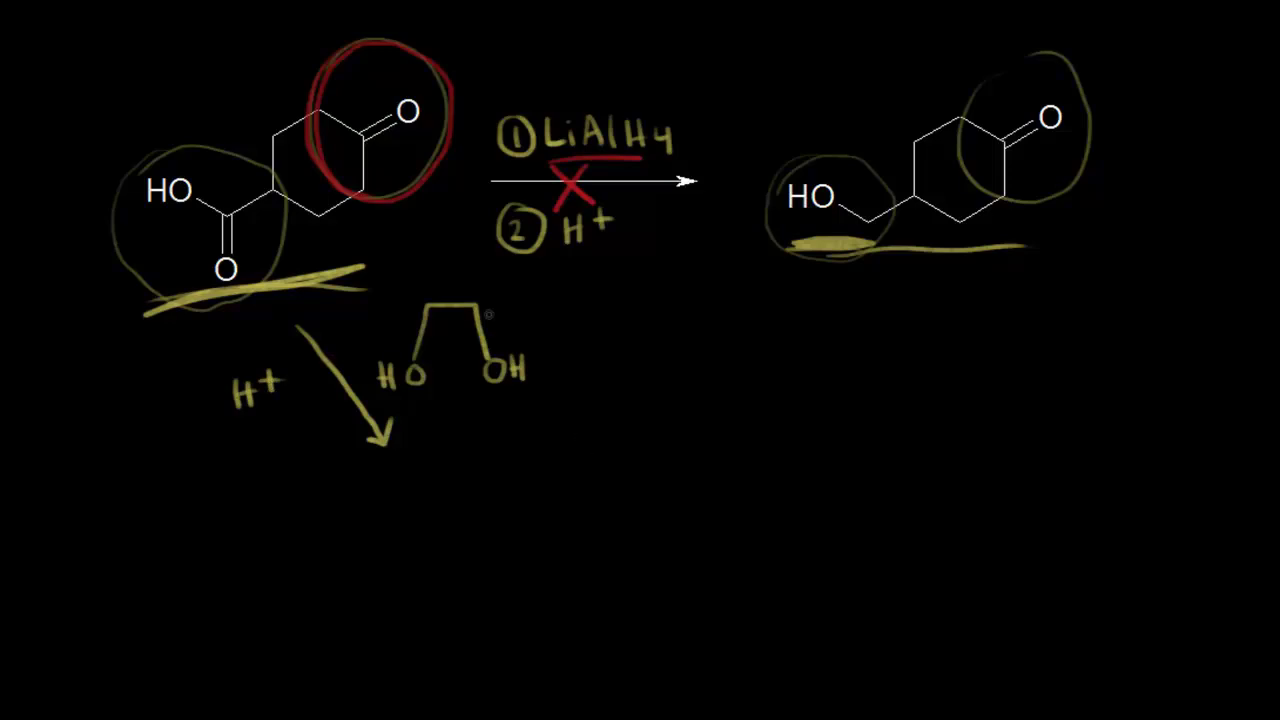 O
HO
O
① LiAlH4
② H+
O
HO
H+
HO OH